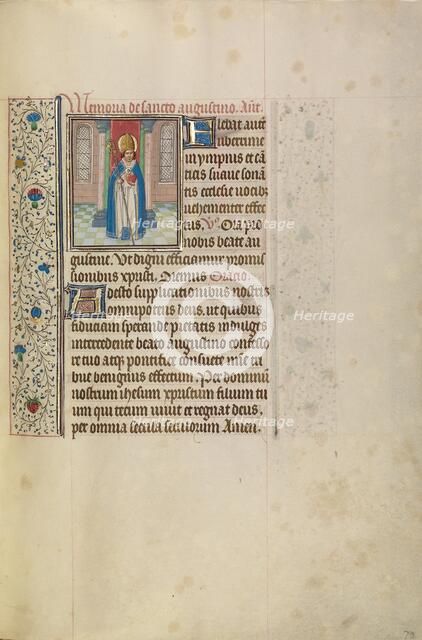 Memoria de sancto augustino. Ant.
Flebat aut
uberrime
in ympnis et cã
ticis suaue sonã
tis ecclesie uocib
uehementer affec
tus. Ora pro
nobis beate au
gustine. Ut digni efficiamur promis
sionibus xpristi. Oremus Oracio.
Adesto supplicationibus nostris
omnipotens deus. et quibus
fiduciam sperande pietatis indulges
intercedente beato augustino confesso
re tuo atq pontifice consuete mie tri
bue benignus effectum. Per dominũ
nostrum ihesum xpristum filium tu
um qui tecum uiuit et regnat deus.
per omnia secula seculorum Amen.
Heritage
Heritage
Heritage
Heritage
Heritage